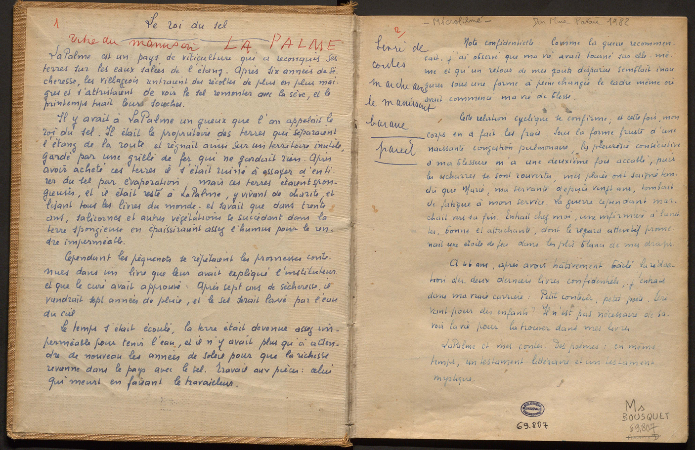 1
Le roi du sel
titre du manuscrit LA PALME
La Palme est un pays de viticulture qui a reconquis ses
terres sur les eaux salées de l'étang. Après six années de sé-
cheresse, les villageois rentraient des récoltes de plus en plus mai-
gres et s'attristaient de voir le sel remonter avec la sève, et le
printemps tuait leurs souches.
Il y avait à La Palme un gueux que l'on appelait le
roi du sel. Il était le propriétaire des terres qui séparaient
l'étang de la route et régnait ainsi sur un territoire inutile
gardé par une grille de fer qui ne gardait rien. Après
avoir acheté ces terres il s'était ruiné à essayer d'enti-
rer du sel par évaporation mais ces terres étaient spon-
gieuses, et il était resté à La Palme, y vivant de charité, et
lisant tous les livres du monde. Il savait que dans trente
ans, salicornes et autres végétations se succédant dans la
terre spongieuse en épaissiraient assez l'humus pour le ren-
dre imperméable.
Cependant les péquenots se répétaient les promesses conte-
nues dans un livre que leur avait expliqué l'instituteur
et que le curé avait approuvé : Après sept ans de sécheresse, il
viendrait sept années de pluie, et le sel serait lavé par l'eau
du ciel
Le temps s'était écoulé, la terre était devenue assez im-
perméable pour tenir l'eau, et il n'y avait plus qu'à atten-
dre de nouveau les années de soleil pour que la richesse
revienne dans le pays avec le sel. Travail aux pièces : celui
qui meurt en faisant le travailleur.
2/
Livre de
contes
marchands
le manuscrit
pareil
1982
Note confidentielle Comme la guerre recommen-
çait, j'ai observé que ma vie avait tourné sur elle-mê-
me et qu'un retour de mes jours disparus semblait inau-
gurer sous une forme à peine changée le cadre même où
avait commencé ma vie de blessé.
Cette relation cyclique se confirme, et cette fois, mon
corps en a fait les frais Sous la forme d'une
congestion pulmonaire, la pleurésie consécutive
à ma blessure m'a une deuxième fois accablé, puis
les escharres se sont rouvertes, mes plaies ont saigné tan-
dis que Marie, ma servante depuis vingt ans, tombait
de fatigue à mon service La guerre cependant mar-
chait vers sa fin. Entrait chez moi, une infirmière
bonne et attachante, dont le regard attentif prome-
nait une étoile de feu dans les plis blancs de mes draps
A 46 ans, après avoir hâtivement la rédac-
tion des deux derniers livres confidentiels, j'entrais
dans ma vraie carrière : Petit conteur,
vant pour des enfants Il n'est pas nécessaire de sa-
voir la vie pour la trouver dans mes livres.
La Palme et mes contes en même
temps, un testament littéraire et un testament
mystique.
69.807
Ms
BOUSQUET
69.807